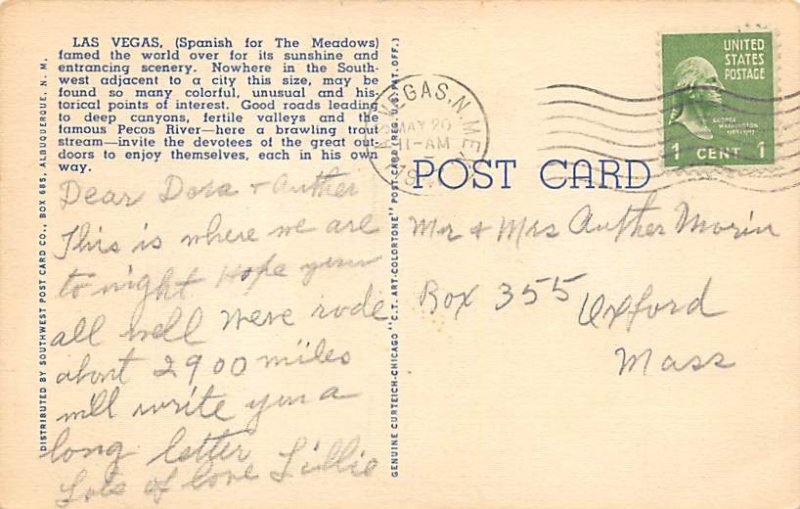 LAS VEGAS, (Spanish for The Meadows)
famed the world over for its sunshine and
entrancing scenery. Nowhere in the South-
west adjacent to a city this size, may be
found so many colorful, unusual and his-
torical points of interest. Good roads leading
to deep canyons, fertile valleys and the
famous Pecos River—here a brawling trout
stream—invite the devotees of the great out-
doors to enjoy themselves, each in his own
way.
Dear Dora + Auther
This is where we are
to night Hope your
all well Weve rode
about 2900 miles
will write you a
long letter
Lots of love Lillie
DISTRIBUTED BY SOUTHWEST POST CARD CO., BOX 685, ALBUQUERQUE, N. M.
GENUINE CURTEICH-CHICAGO "C.T. ART-COLORTONE" POST CARD (REG. U.S. PAT. OFF.)
VEGAS, N. MEX.
MAY 20
11-AM
UNITED
STATES
POSTAGE
GEORGE
WASHINGTON
1789-1797
1 CENT 1
POST CARD
Mr + Mrs Auther Morin
Box 355 Oxford
Mass